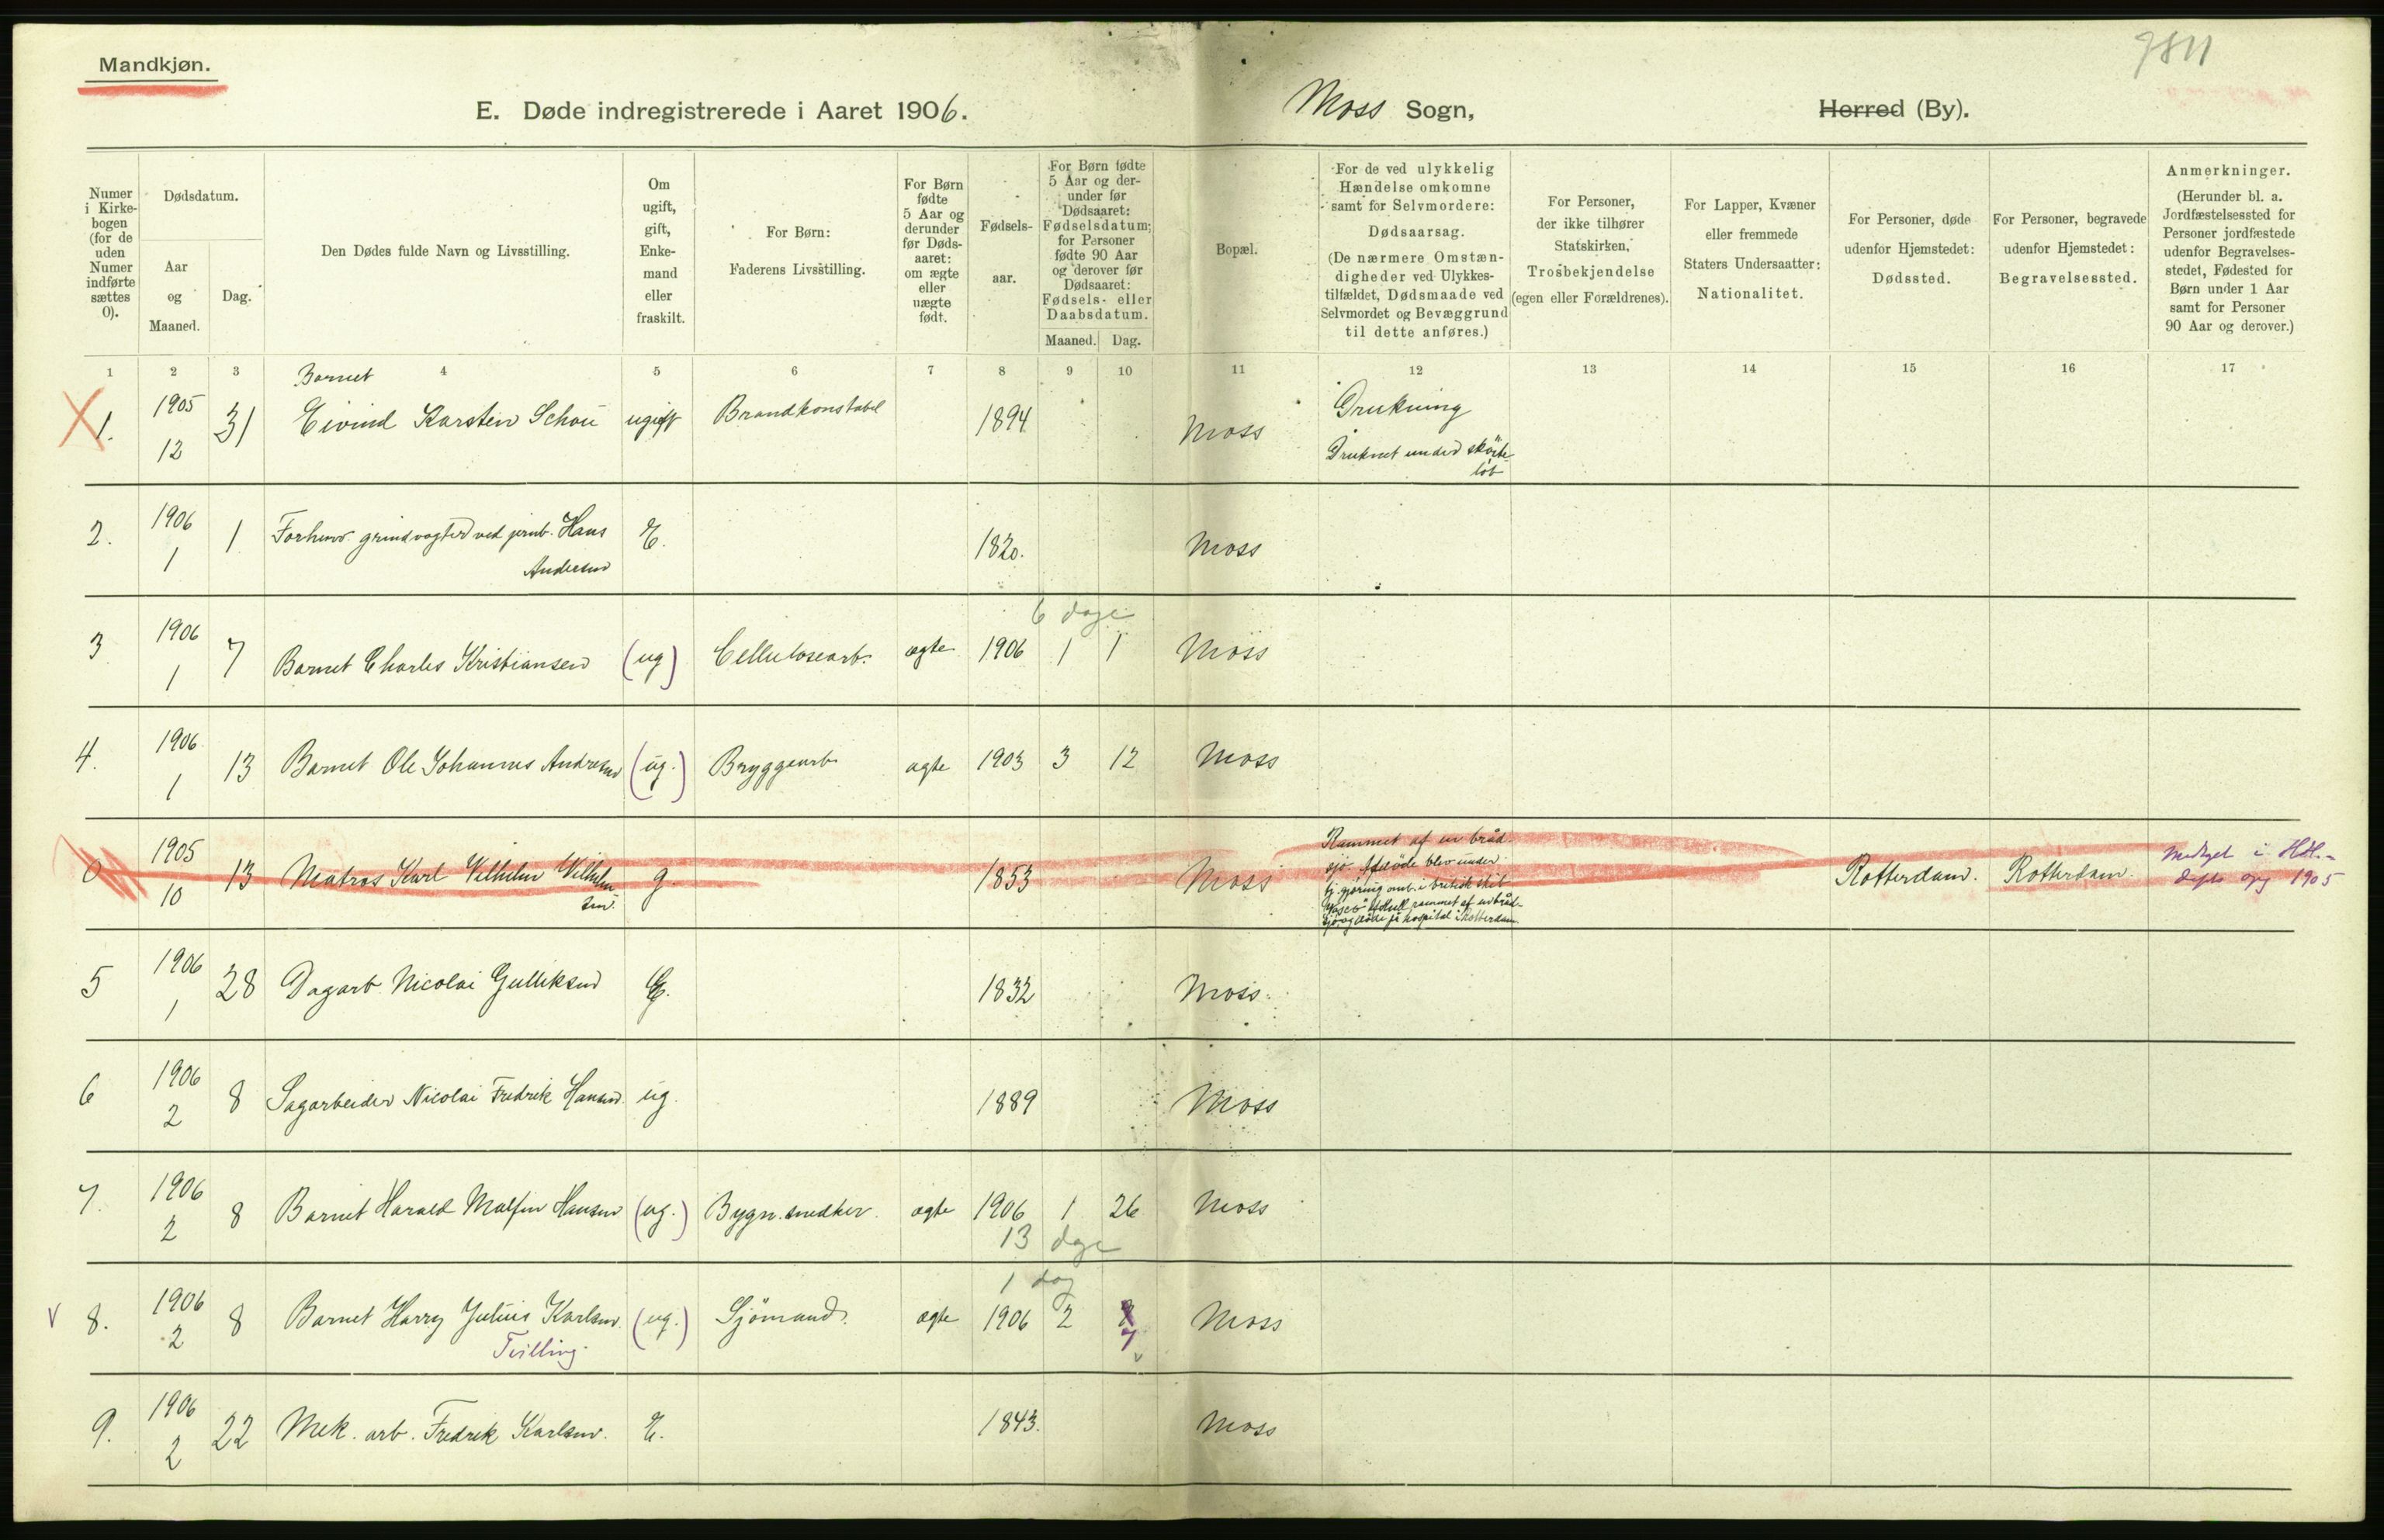 Mandkjøn.
9811
E. Døde indregistrerede i Aaret 1906. Moss Sogn, Herred (By).
Numer i Kirkebogen (for de uden Numer indførte sættes 0).
Dødsdatum.
Aar og Maaned.
Dag.
Den Dødes fulde Navn og Livsstilling.
Om ugift, gift, Enkemand eller fraskilt.
For Børn: Faderens Livsstilling.
For Børn fødte 5 Aar og derunder før Dødsaaret: om ægte eller uægte født.
Fødselsaar.
For Børn fødte 5 Aar og derunder før Dødsaaret: Fødselsdatum; for Personer fødte 90 Aar og derover før Dødsaaret: Fødsels- eller Daabsdatum.
Maaned. Dag.
Bopæl.
For de ved ulykkelig Hændelse omkomne samt for Selvmordere: Dødsaarsag. (De nærmere Omstændigheder ved Ulykkestilfældet, Dødsmaade ved Selvmordet og Bevæggrund til dette anføres.)
For Personer, der ikke tilhører Statskirken, Trosbekjendelse (egen eller Forældrenes).
For Lapper, Kvæner eller fremmede Staters Undersaatter: Nationalitet.
For Personer, døde udenfor Hjemstedet: Dødssted.
For Personer, begravede udenfor Hjemstedet: Begravelsessted.
Anmerkninger. (Herunder bl. a. Jordfæstelsessted for Personer jordfæstede udenfor Begravelsesstedet, Fødested for Børn under 1 Aar samt for Personer 90 Aar og derover.)
1 2 3 4 5 6 7 8 9 10 11 12 13 14 15 16 17
1. 1905 12 31 Barnet Eivind Karsten Schou ugift Brandkonstabel 1894 Moss Drukning
Druknet under sköite-
löb
2. 1906 1 1 Forhenv. grindvogter ved jernb. Hans E. 1820. Moss
Andersen
6 dage
3 1906 1 7 Barnet Charles Kristiansen (ug) Cellulosearb. ægte 1906 1 1 Moss
4. 1906 1 13 Barnet Ole Johannes Andresen (ug.) Bryggearb. ægte 1903 3 12 Moss
0 1905 10 13 Matros Karl Vilhelm Vilhelm- g. 1853 Moss Rammet af en bråd-
sen sjö. Afdöde blev under
rammet af en bråd-
sjö og döde på hospital i Rotterdam. Rotterdam. Rotterdam. Medtaget i
1905
5 1906 1 28 Dagarb. Nicolai Gulliksen E. 1832 Moss.
6 1906 2 8 Sagarbeider Nicolai Fredrik Hansen ug. 1889 Moss
7. 1906 2 8 Barnet Harald Malfin Hansen (ug.) Bygn. snedker. ægte 1906 1 26 Moss
13 dage
1 dag
v 8. 1906 2 8 Barnet Harry Julius Karlsen. (ug.) Sjömand. ægte 1906 2 7 Moss
Tvilling.
9. 1906 2 22 Mek. arb. Fredrik Karlsen. E. 1843. Moss